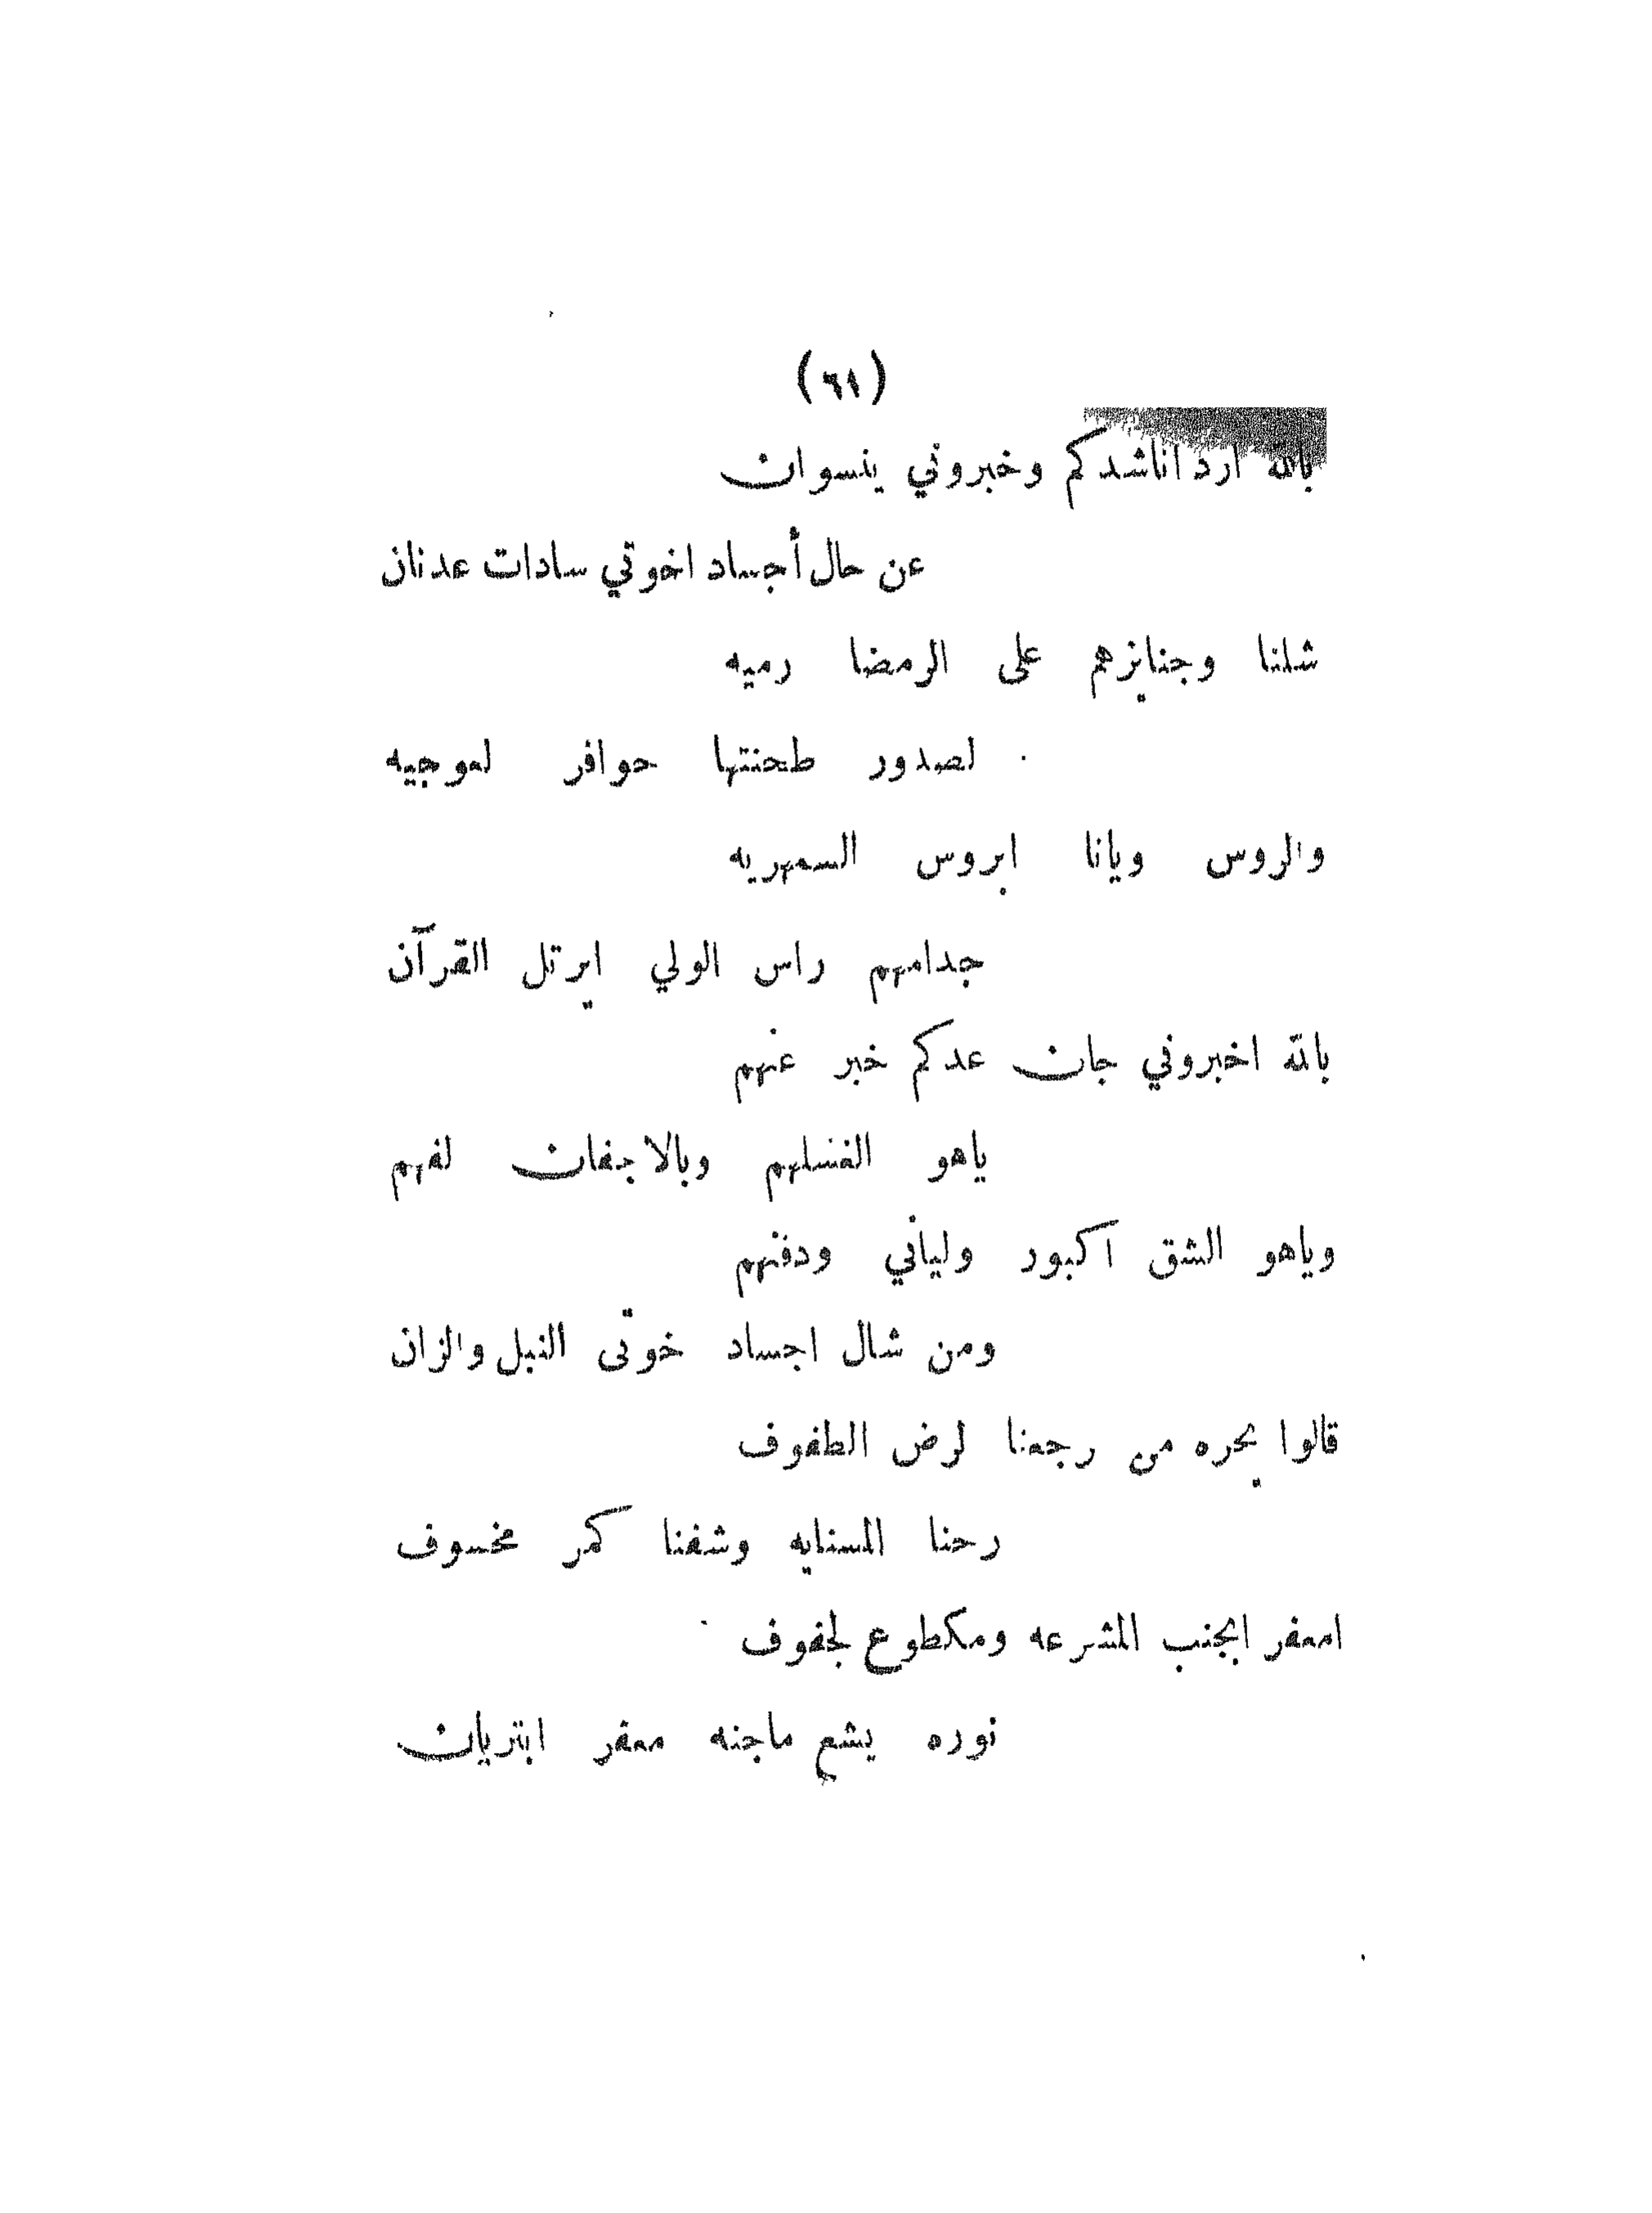 (٦١)
بالله ارد اناشدكم وخبروني ينسوان
عن حال أجساد اخوتي سادات عدنان
شلنا وجنايزهم على الرمضا رميه
لصدور طحنتها حوافر لعوجيه
والروس ويانا ابروس السمهريه
جدامهم راس الولي ايرتل القرآن
بالله اخبروني جان عدكم خبر عنهم
ياهو الغسلهم وبالاجفان لفهم
وياهو الشق اكبور ولياني ودفنهم
ومن شال اجساد خوتى النبل والزان
قالوا يحره من رجعنا لرض الطفوف
رحنا المسنايه وشفنا كمر مخسوف
امعفر ابجنب المشرعه ومكطوع لجفوف
نوره يشع ماجنه معفر ابتربان